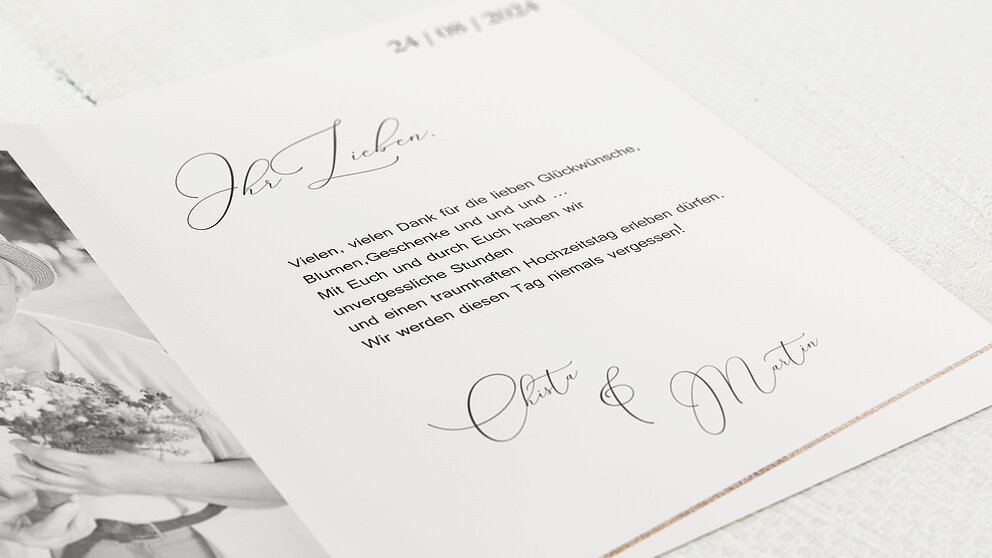 24 | 08 | 2024
Ihr Lieben,
Vielen, vielen Dank für die lieben Glückwünsche,
Blumen,Geschenke und und und ...
Mit Euch und durch Euch haben wir
unvergessliche Stunden
und einen traumhaften Hochzeitstag erleben dürfen.
Wir werden diesen Tag niemals vergessen!
Chista & Martin